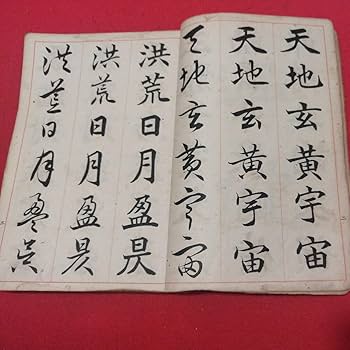 天地玄黄宇宙
天地玄黄宇宙
天地玄黄宇宙
洪荒日月盈昃
洪荒日月盈昃
洪荒日月盈昃